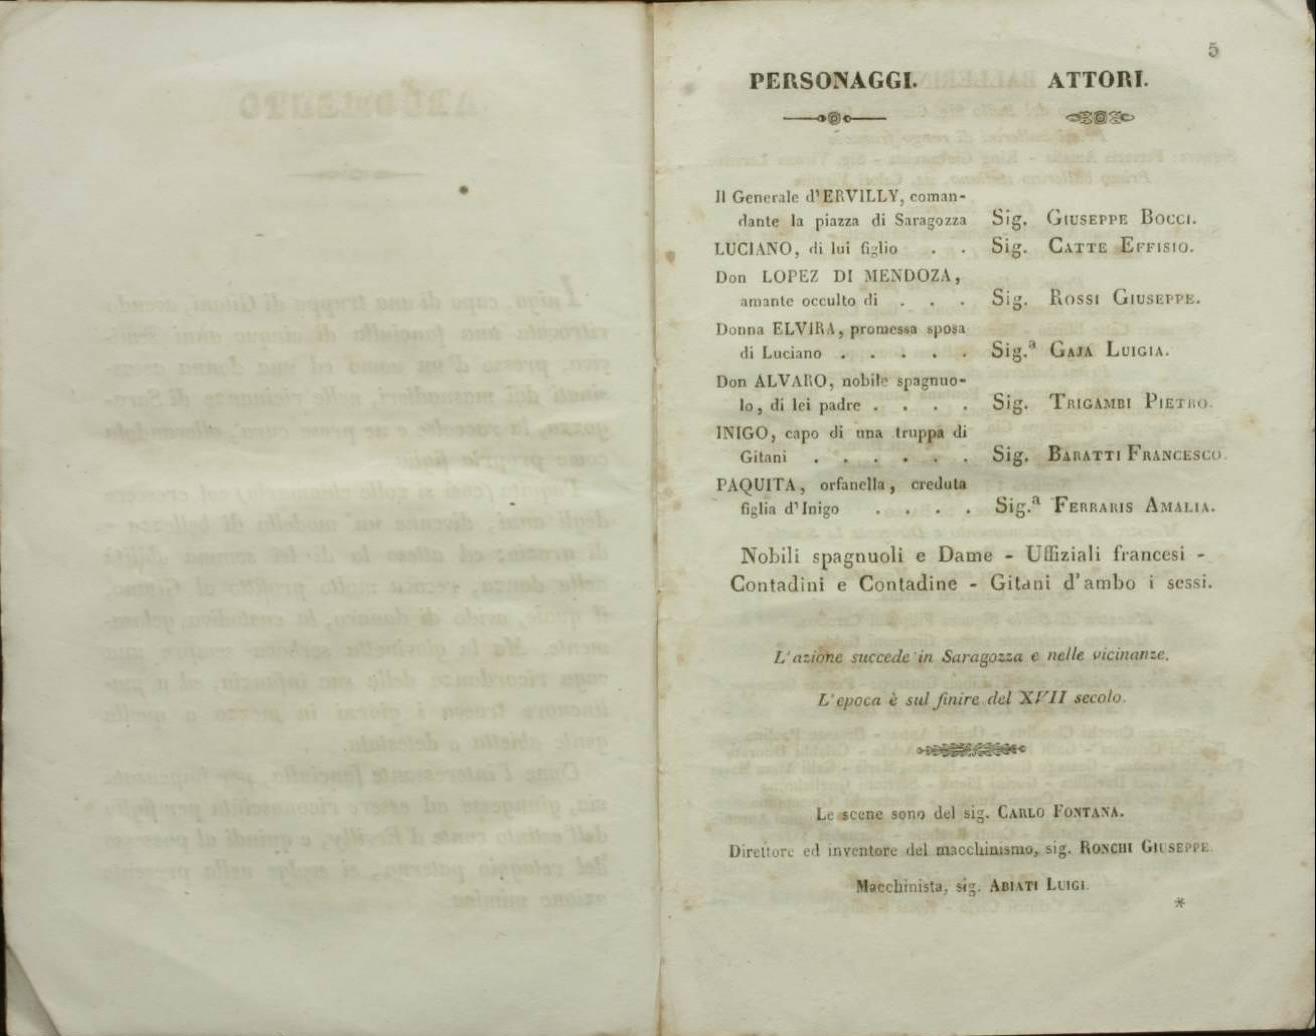 5
PERSONAGGI. ATTORI.
Il Generale d'ERVILLY, coman-
dante la piazza di Saragozza Sig. GIUSEPPE BOCCI.
LUCIANO, di lui figlio . . Sig. CATTE EFFISIO.
Don LOPEZ DI MENDOZA,
amante occulto di . . . Sig. ROSSI GIUSEPPE.
Donna ELVIRA, promessa sposa
di Luciano . . . . . Sig.ª GAJA LUIGIA.
Don ALVARO, nobile spagnuo-
lo, di lei padre . . . . Sig. TRIGAMBI PIETRO.
INIGO, capo di una truppa di
Gitani . . . . . . Sig. BARATTI FRANCESCO.
PAQUITA, orfanella, creduta
figlia d'Inigo . . . . Sig.ª FERRARIS AMALIA.
Nobili spagnuoli e Dame - Uffiziali francesi -
Contadini e Contadine - Gitani d'ambo i sessi.
L'azione succede in Saragozza e nelle vicinanze.
L'epoca è sul finire del XVII secolo.
Le scene sono del sig. CARLO FONTANA.
Direttore ed inventore del macchinismo, sig. RONCHI GIUSEPPE.
Macchinista, sig. ABIATI LUIGI.
*